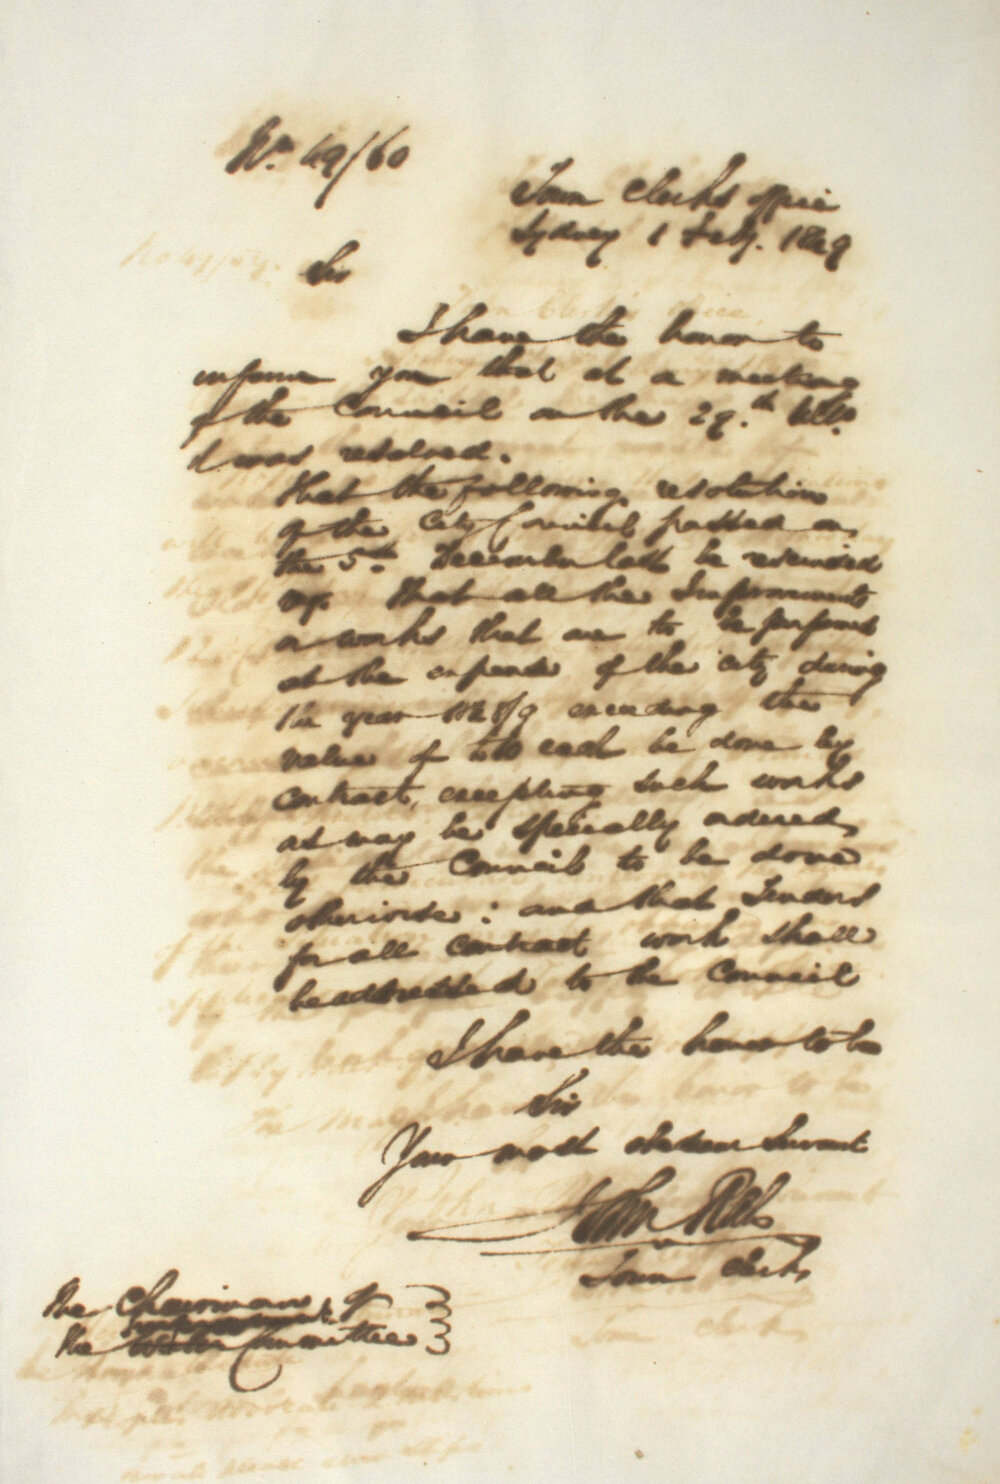 No. 49/60
Town Clerks Office
Sydney 1 Feby. 1849
Sir
I have the honor to
inform you that at a meeting
of the Council on the 29.th Ulto
it was resolved.
that the following resolution
of the City Council passed on
the 5th December last be rescinded
viz. That all the Improvements
or works that are to be performed
at the expense of the City during
the year 1849 exceeding the
value of each be done by
contract, excepting such works
as may be specially ordered
by the Council to be done
otherwise: and that Tenders
for all contract work shall
be addressed to the Council
I have the honor to be
Sir
Your most obedient Servant
John Rees
Town Clerk
The Chairman of
Improvement
the Committee